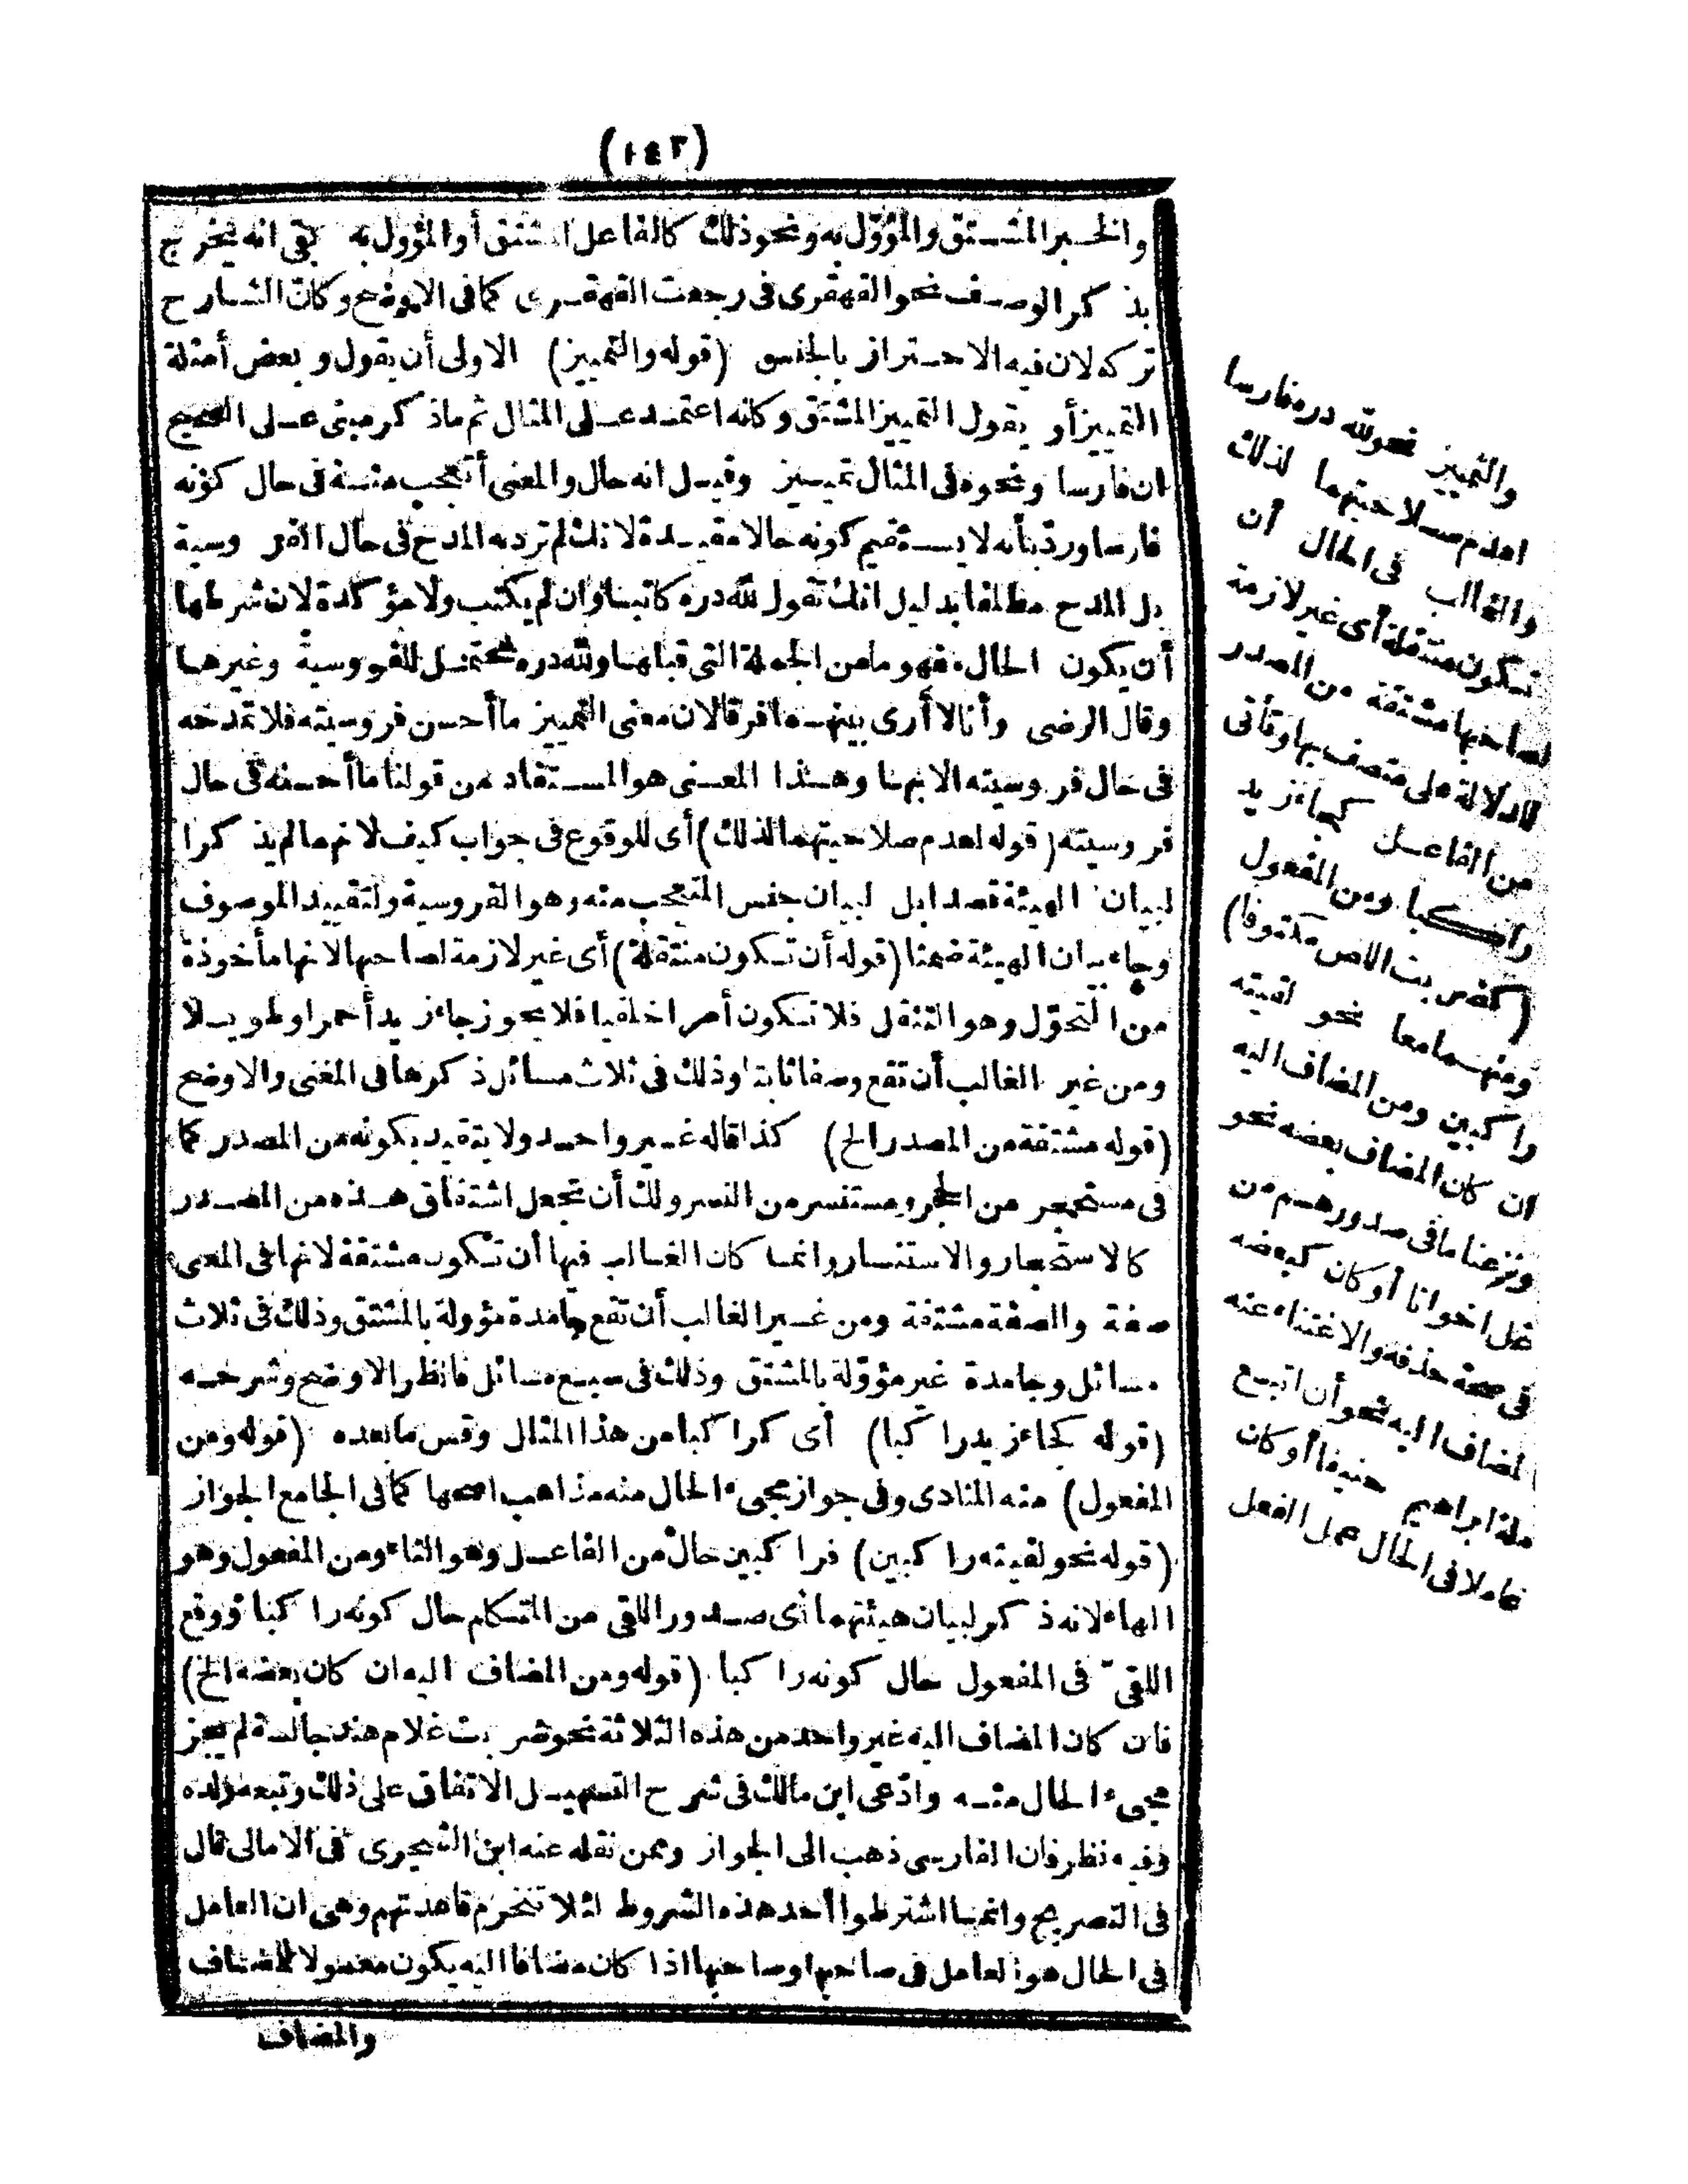 (١٤٢)
والخبر المشتق والمؤوّل به ونحو ذلك كالفاعل المشتق أو المؤول به بقى انه يخرج
بذكر الوصف نحو القهقرى فى رجعت القهقرى كما فى الاوضح وكان الشارح
تركه لان فيه الاحتراز بالجنس (قوله والتمييز) الاولى أن يقول وبعض أمثلة
التمييز أو يقول التمييز المشتق وكانه اعتمد على المثال ثم ماذكر مبنى على الصحيح
ان فارسا ونحوه فى المثال تمييز وقيل انه حال والمعنى أتعجب منه فى حال كونه
فارسا وردّ بأنه لا يستقيم كونه حالا مقيدة لانك لم ترد به المدح فى حال الفروسية
بل المدح مطلقا بدليل انك تقول لله دره كاتبا وان لم يكتب ولا مؤكدة لان شرطها
أن يكون الحال مفهوما من الجملة التى قبلها ولله دره محتمل للفروسية وغيرها
وقال الرضى وأنا لا أرى بينهما فرقا لان معنى التمييز ما أحسن فروسيته فلا تمدحه
فى حال فروسيته الا بها وهذا المعنى هو المستفاد من قولنا ما أحسنه فى حال
فروسيته (قوله لعدم صلاحيتهما لذلك) أى للوقوع فى جواب كيف لانهما لم يذكرا
لبيان الهيئة قصدا بل لبيان جنس المتعجب منه وهو الفروسية ولتقييد الموصوف
وجاء بيان الهيئة ضمنا (قوله أن تكون منتقلة) أى غير لازمة لصاحبها لانها مأخوذة
من التحوّل وهو التنقل فلا تكون أمرا خلقيا فلا يجوز جاء زيد أحمر أو طويلا
ومن غير الغالب أن تقع وصفا ثابتا وذلك فى ثلاث مسائل ذكرها فى المغنى والاوضح
(قوله مشتقة من المصدر الخ) كذا قاله غير واحد ولا يتقيد بكونه من المصدر كما
فى مستحجر من الحجر ومستنسر من النسر ولك أن تجعل اشتقاق هذه من المصدر
كالاستحجار والاستنسار وانما كان الغالب فيها أن تكون مشتقة لانها فى المعنى
صفة والصفة مشتقة ومن غير الغالب أن تقع جامدة مؤولة بالمشتق وذلك فى ثلاث
مسائل وجامدة غير مؤوّلة بالمشتق وذلك فى سبع مسائل فانظر الاوضح وشرحه
(قوله كجاء زيد راكبا) أى كراكبا من هذا المثال وقس ما بعده (قوله ومن
المفعول) منه المنادى وفى جواز مجىء الحال منه مذاهب اصحها كما فى الجامع الجواز
(قوله نحو لقيته راكبين) فراكبين حال من الفاعل وهو التاء ومن المفعول وهو
الهاء لانه ذكر لبيان هيئتهما أى صدور اللقى من المتكلم حال كونه راكبا ووقع
اللقى فى المفعول حال كونه راكبا (قوله ومن المضاف اليه ان كان بعضه الخ)
فان كان المضاف اليه غير واحد من هذه الثلاثة نحو ضربت غلام هند جالسة لم يجز
مجىء الحال منه وادّعى ابن مالك فى شرح التسهيل الاتفاق على ذلك وتبعه ولده
وفيه نظر فان الفارسى ذهب الى الجواز وممن نقله عنه ابن الشجرى فى الامالى قال
فى التصريح وانما اشترطوا أحد هذه الشروط لئلا تنخرم قاعدتهم وهى ان العامل
فى الحال هو العامل فى صاحبها وصاحبها اذا كان مضافا اليه يكون معمولا للمضاف
والمضاف
والتمييز نحو لله دره فارسا
لعدم صلاحيتهما لذلك
والغالب فى الحال أن
تكون منتقلة أى غير لازمة
لصاحبها مشتقة من المصدر
للدلالة على متصف بها وتأتى
من الفاعل كجاء زيد
راكبا ومن المفعول
(كضربت اللص مكتوفا)
ومنهما معا نحو لقيته
راكبين ومن المضاف اليه
ان كان المضاف بعضه نحو
ونزعنا ما فى صدورهم من
غل اخوانا أو كان كبعضه
فى صحة حذفه والاغتناء عنه
المضاف اليه نحو أن اتبع
ملة ابراهيم حنيفا أو كان
عاملا فى الحال عمل الفعل